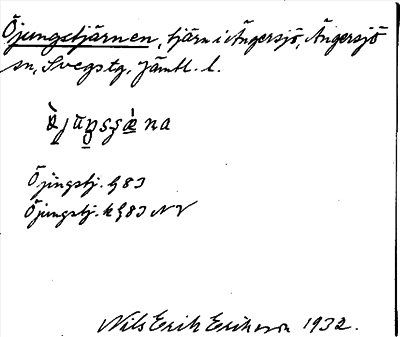 Öjungstjärnen, tjärn i Ängersjö, Ängersjö
sn, Svegs tg, Jämtl. l.
Öjingstj. G 83
Öjungstj. k G 83 NV
Nils Erik Eriksson 1932.